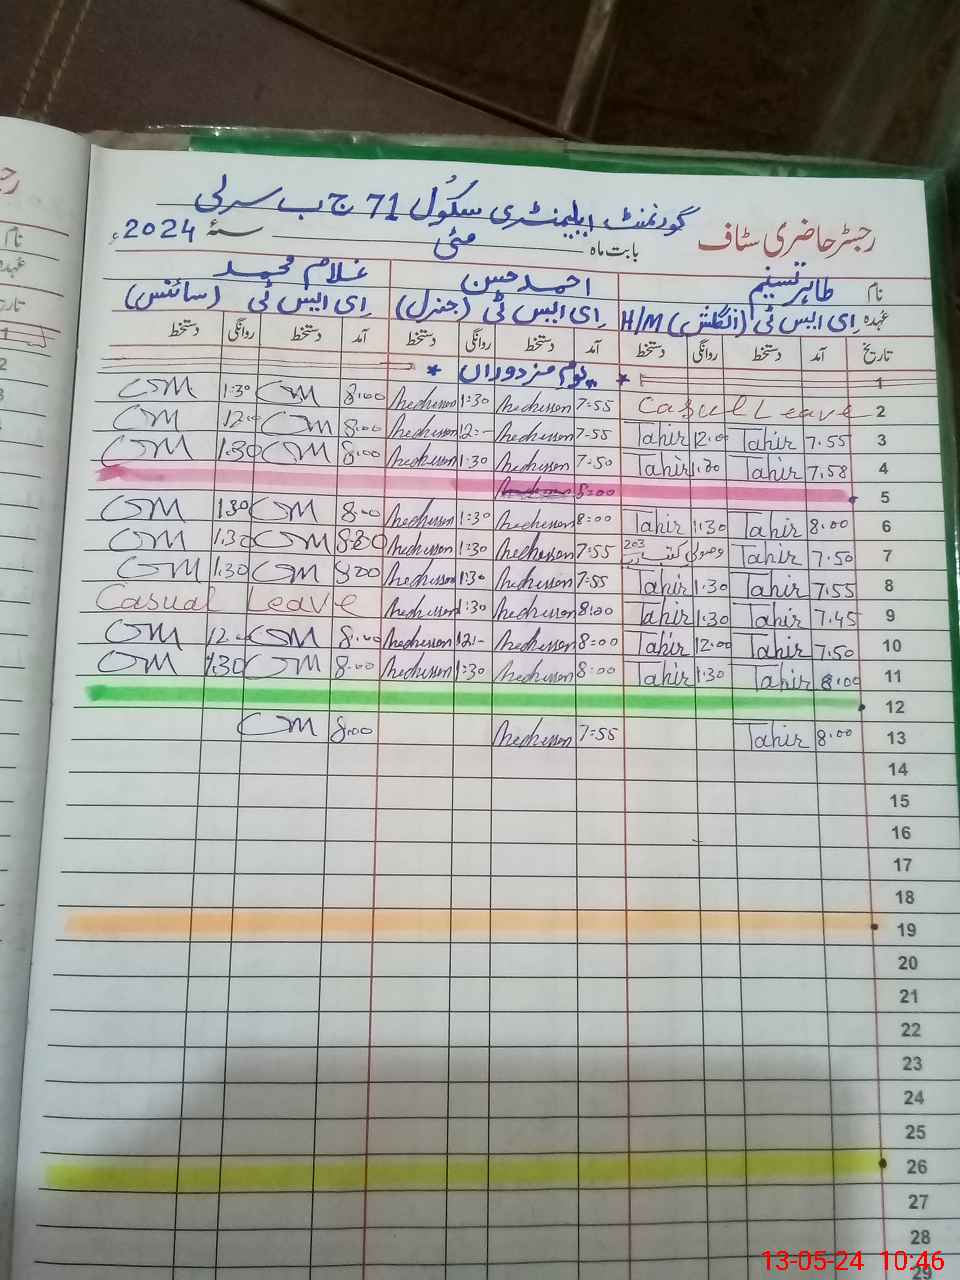 رجسٹر حاضری سٹاف گورنمنٹ ایلیمنٹری سکول 71 ج ب سرلی
بابت ماہ مئی سنۂ 2024ء
نام طاہر تسنیم احمد حسن غلام محمد
عہدہ اِی ایس ٹی (انگلش) H/M اِی ایس ٹی (جنرل) اِی ایس ٹی (سائنس)
تاریخ آمد دستخط روانگی دستخط آمد دستخط روانگی دستخط آمد دستخط روانگی دستخط
1 * یومِ مزدوراں *
2 Casual Leave 7:55 1:30 8:00 GM 1:30 GM
3 7.55 Tahir 12:00 Tahir 7-55 12:- 8:00 GM 12:00 GM
4 7.58 Tahir 1:30 Tahir 7:50 1:30 8:00 GM 1:30 GM
5 8:00
6 8:00 Tahir 1:30 Tahir 8:00 1:30 8:00 GM 1:30 GM
7 7.50 Tahir وصولی کتب 7:55 1:30 GM 1:30 GM
8 7.55 Tahir 1:30 Tahir 7:55 1:30 8:00 GM 1:30 GM
9 7.45 Tahir 1:30 Tahir 8:00 1:30 Casual Leave
10 7.50 Tahir 12:00 Tahir 8:00 12:- 8:00 GM 12:00 GM
11 8:00 Tahir 1:30 Tahir 8:00 1:30 8:00 GM 1:30 GM
12
13 8:00 Tahir 7:55 8:00 GM
14
15
16
17
18
19
20
21
22
23
24
25
26
27
28
29
13-05-24 10:46